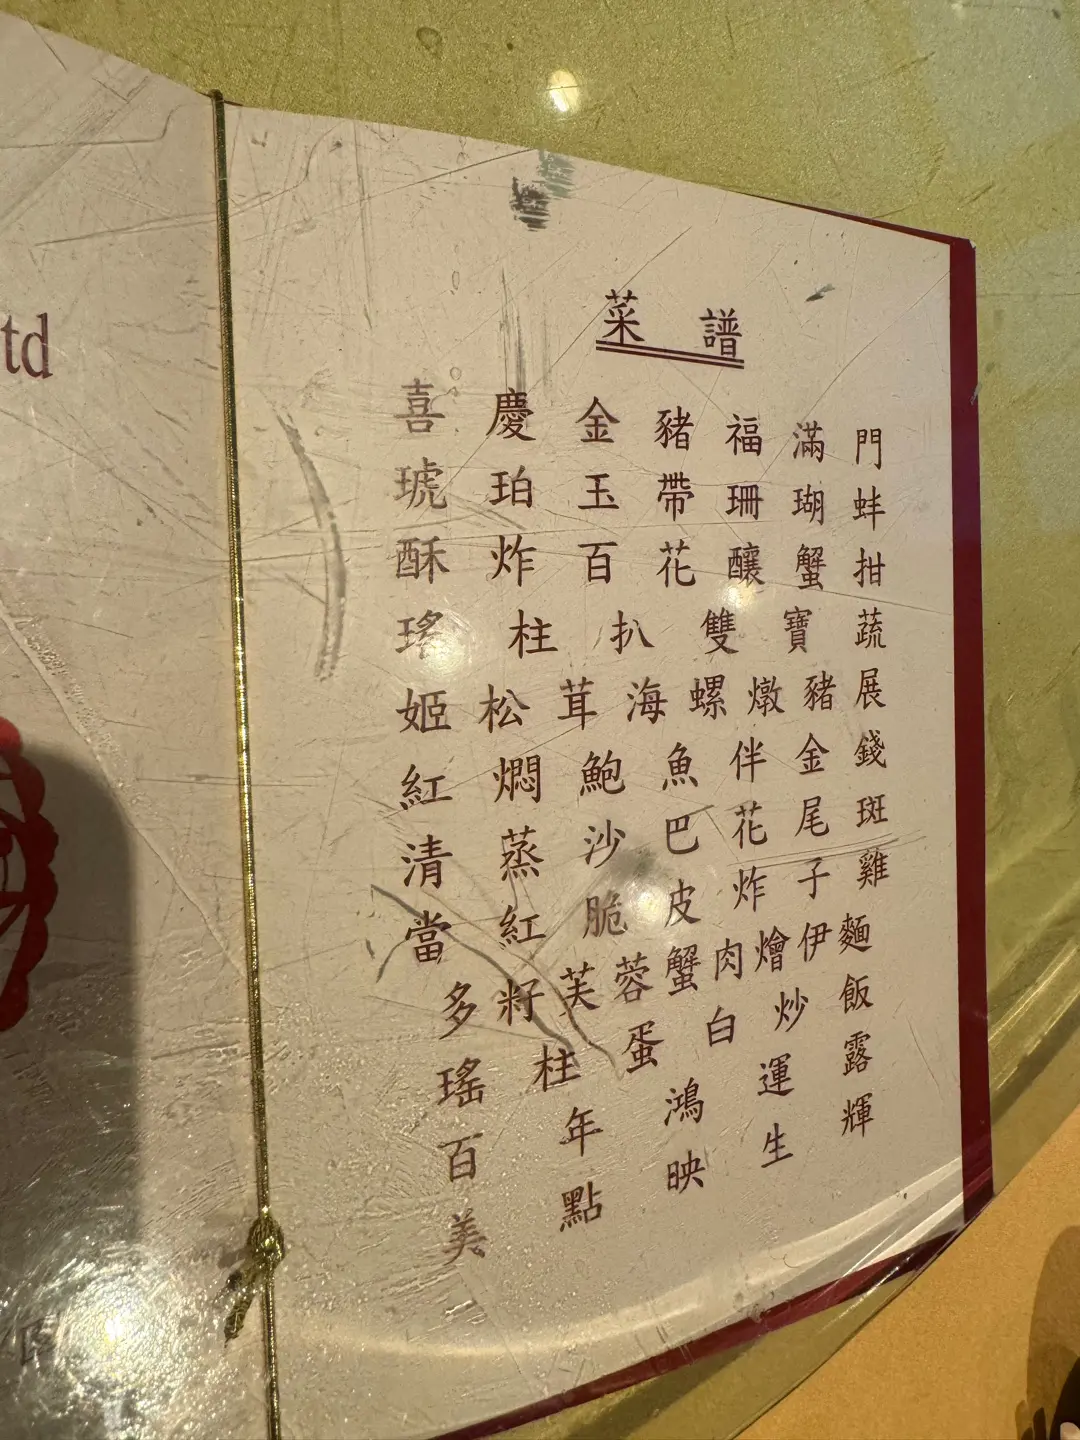 td
菜譜
喜慶金豬福滿門
琥珀玉帶珊瑚蚌
酥炸百花釀蟹拑
瑤柱扒雙寶蔬
姬松茸海螺燉豬展
紅燜鮑魚伴金錢
清蒸沙巴花尾斑
當紅脆皮炸子雞
多籽芙蓉蟹肉燴伊麵
瑤柱蛋白炒飯
百年鴻運露
美點映生輝